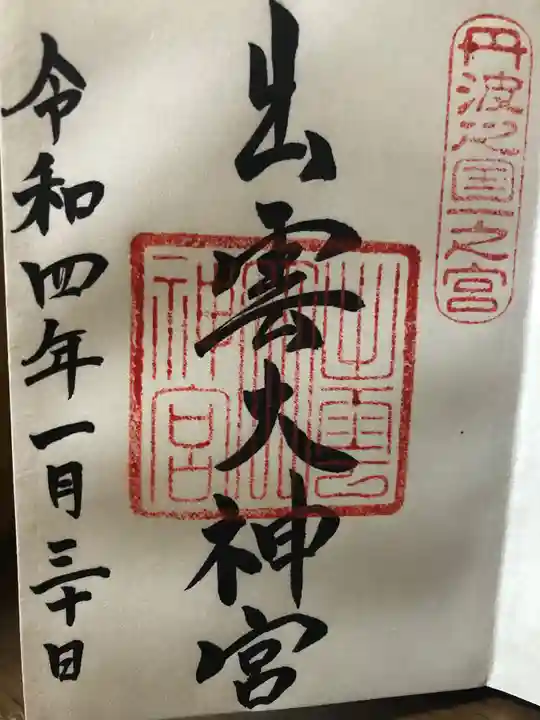 丹波之国一之宮
出雲大神宮
出雲大神宮
令和四年一月三十日